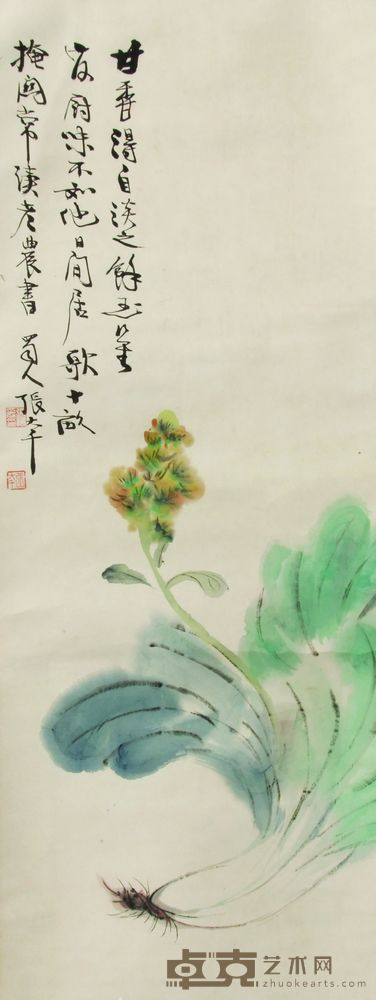 甘香得自淡之餘玉
厨味不如他日閒居歌十畝
掩關常讀老農書 蜀人張大千
卓克艺术网
zhuokearts.com